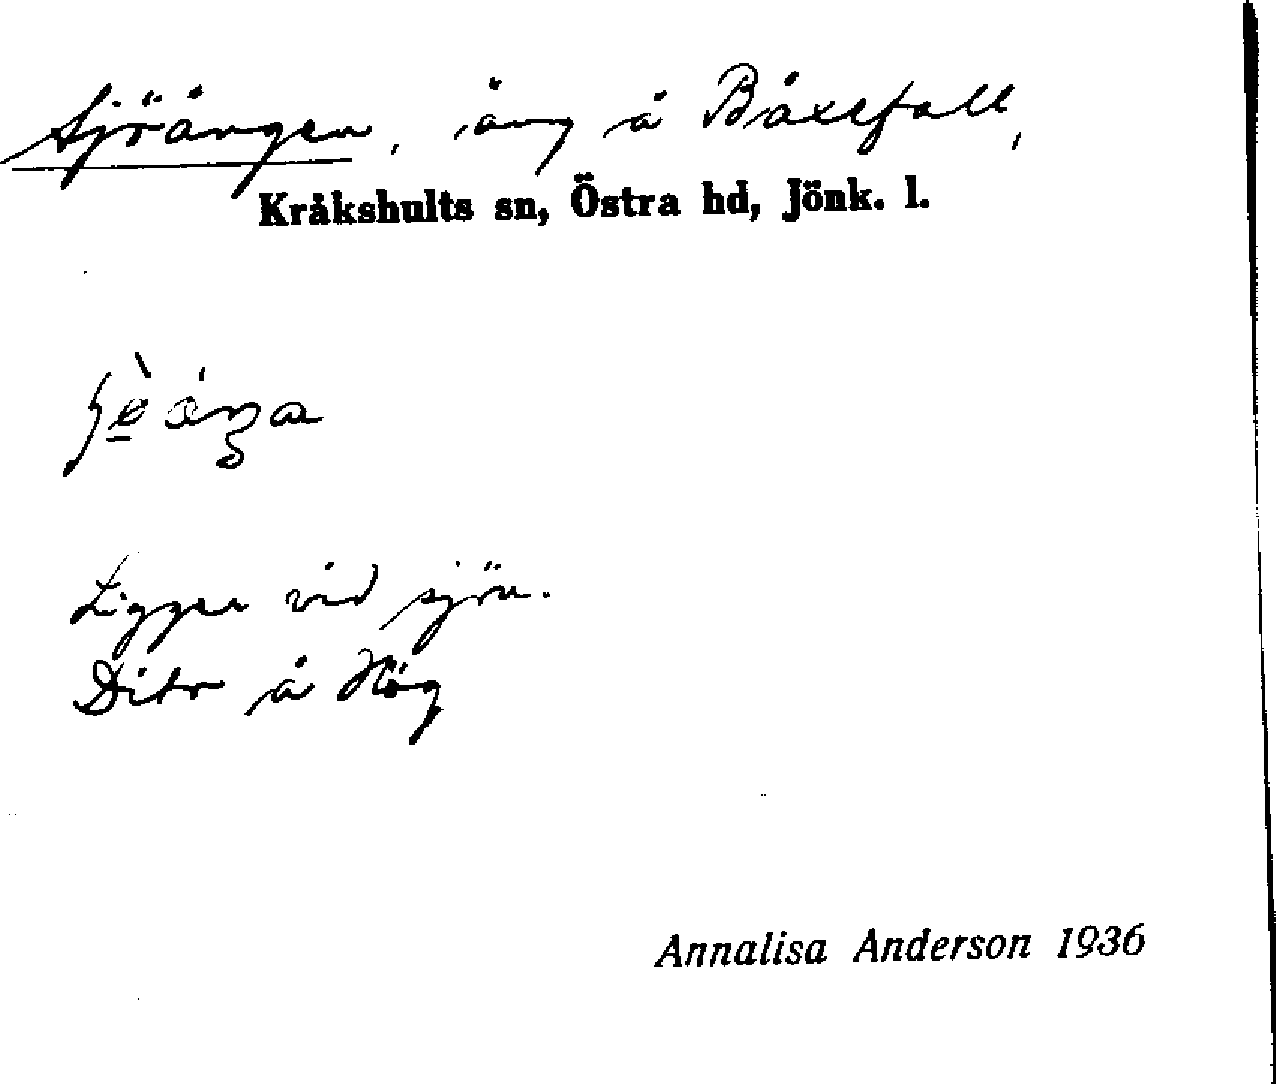 Sjöängen, äng å Båxefall,
Kråkshults sn, Östra hd, Jönk. l.
Ligger vid sjön.
Dito å Hög
Annalisa Anderson 1936